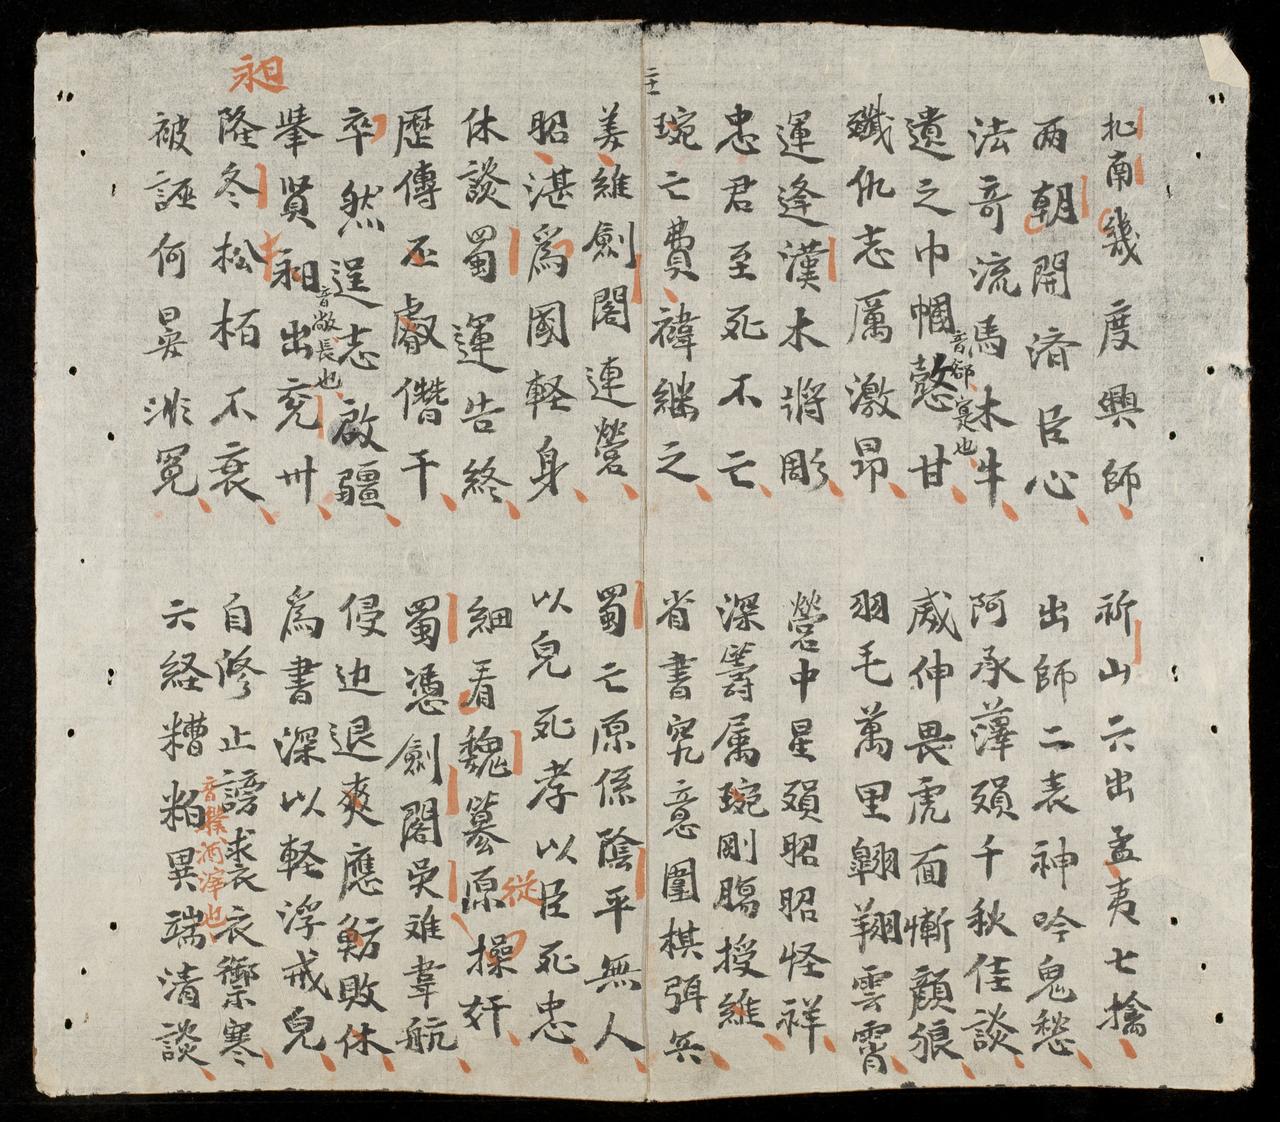 北南幾度興師
祈山六出孟夷七擒
両朝開済臣心
出師二表神吟鬼愁
法奇流馬木牛
阿承薄殞千秋佳談
遺之巾幗憨甘
威伸畏虎面慚顏狼
殲仇志厲激昂
羽毛萬里翱翔雲霄
運逢漢木將彫
營中星殞昭昭怪祥
忠君至死不亡
深籌属琬剛腸授維
琬亡費禕継之
省書究意圍棋弭兵
姜維劍閣連營
蜀亡原係陰平無人
昭湛爲國軽身
以兒死孝以臣死忠
休談蜀運告終
細看魏篡原從操奸
歷傳丕叡僭干
蜀憑劍閣吳难葦航
卒然逞志啟疆
侵边退爽應魴敗休
音敞長也
舉賢昶出兖卅
爲書深以軽浮戒兒
昶
隆冬松栢不衰
自修止謗求裘衣禦寒
被誣何晏冤
六経糟粕異端清談
酒滓也